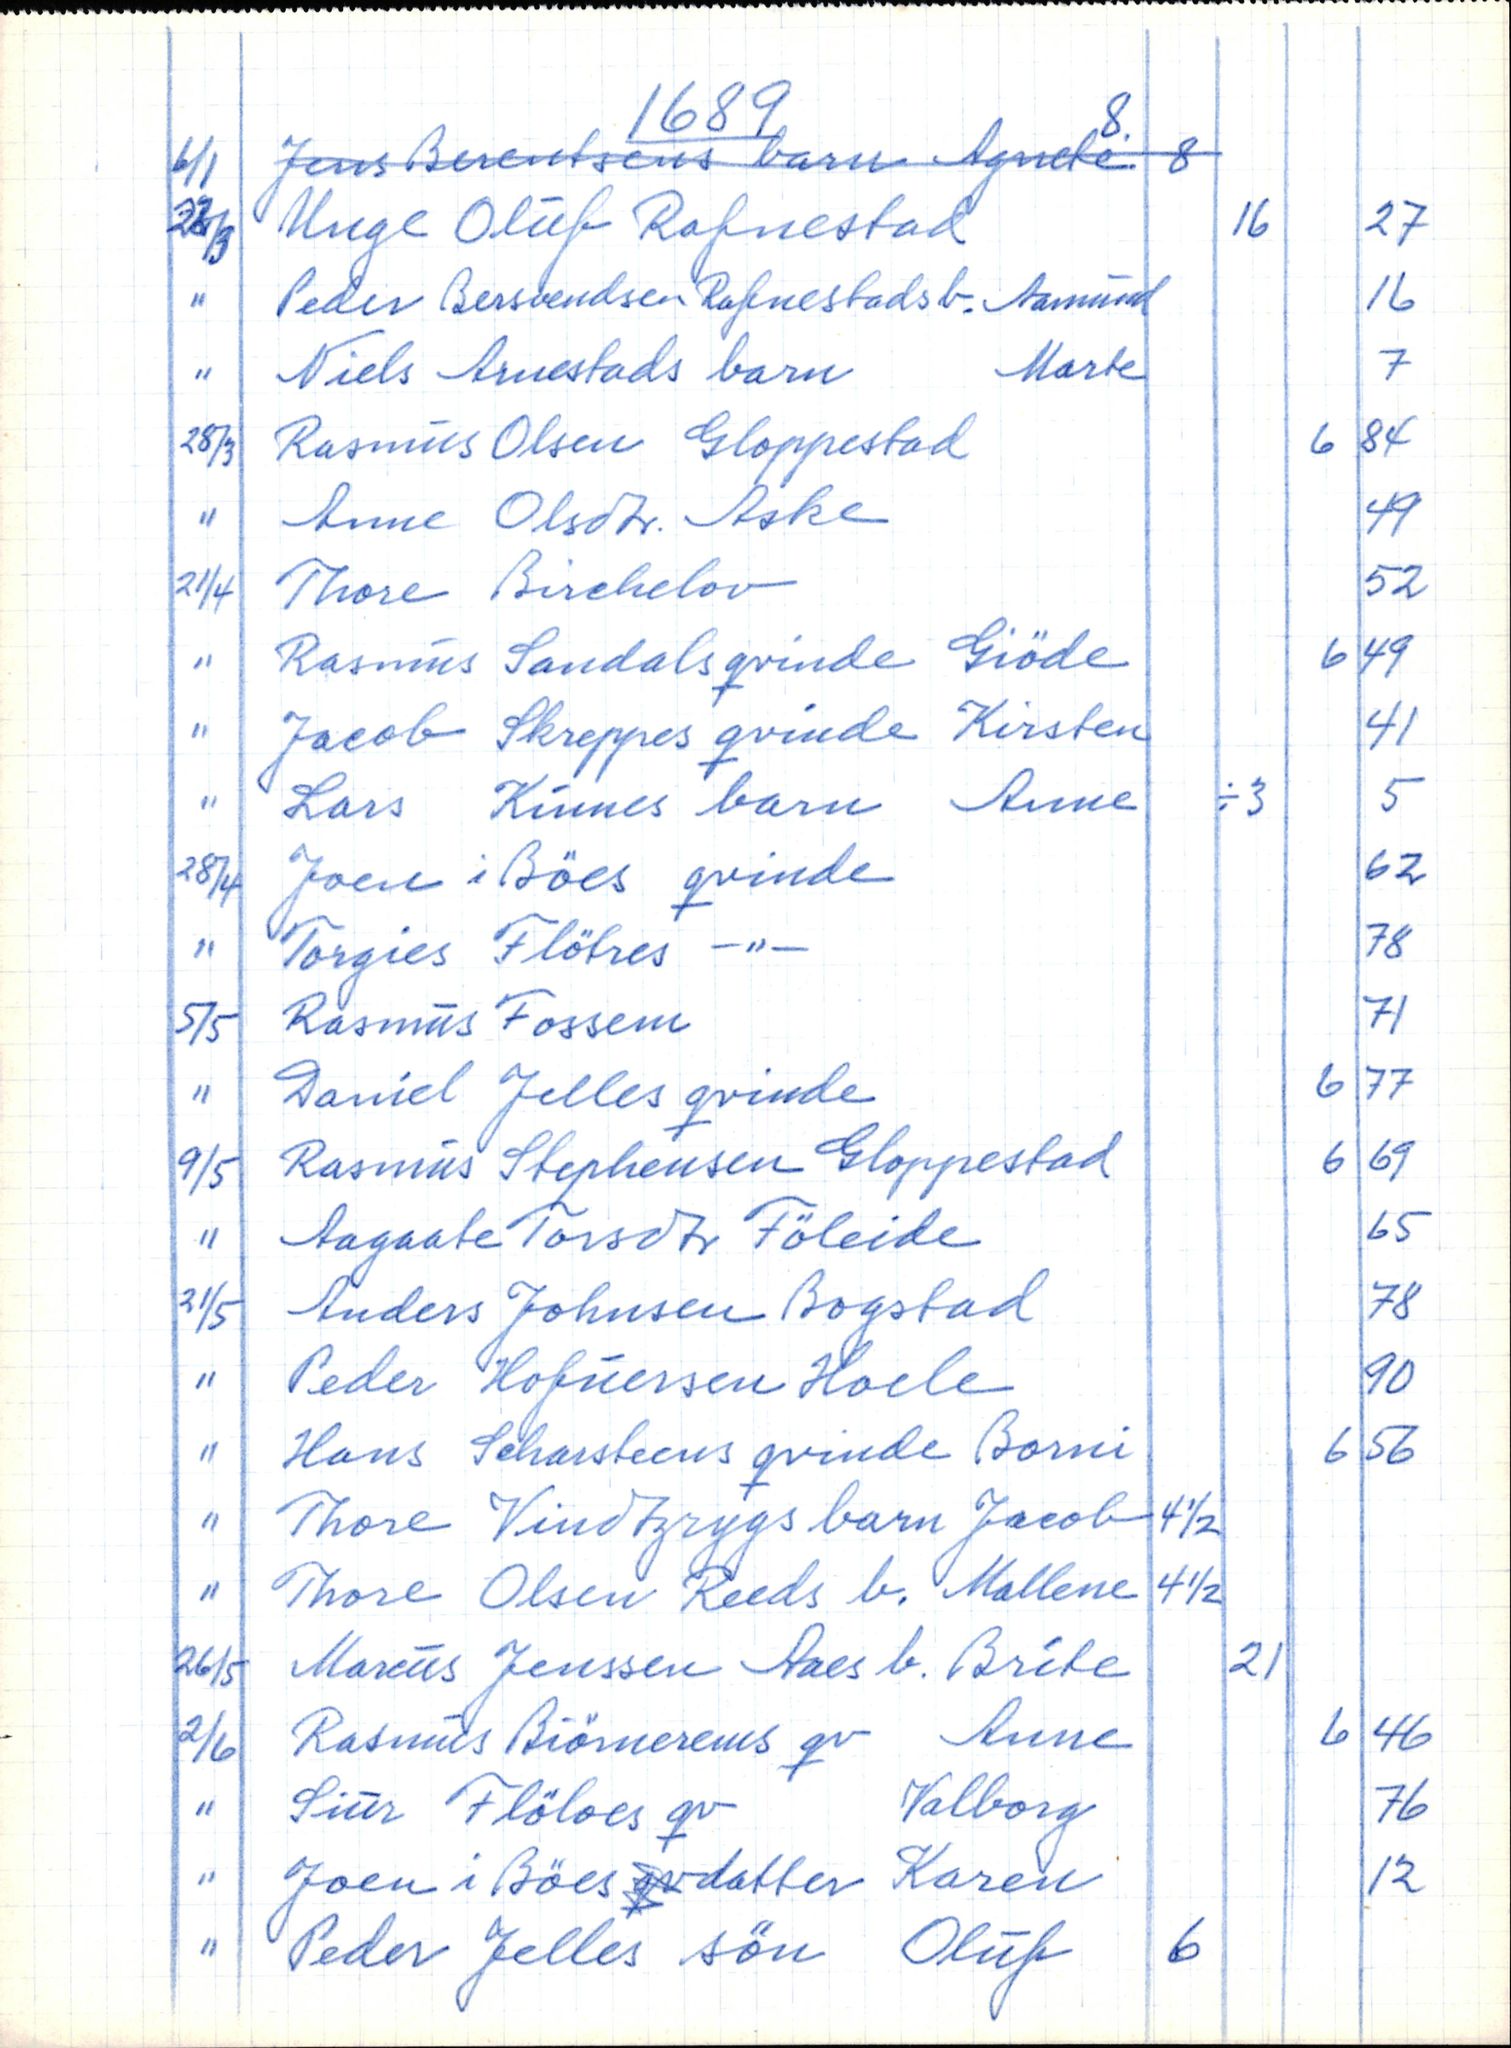 1689 8.
6/1 Jens Berentsens barn Agnete 8
/3 Unge Oluf Rafnestad 16 27
" Peder Bersvendsen Rafnestads b. Aamund 16
" Niels Arnestads barn Marte 7
28/3 Rasmus Olsen Gloppestad 6 84
" Anne Olsdtr. Aske 49
21/4 Thore Birchelov 52
" Rasmus Sandals qvinde Giöde 6 49
" Jacob Skreppes qvinde Kirsten 41
" Lars Kinnes barn Anne ÷3 5
28/4 Joen i Böes qvinde 62
" Torgies Flötres —"— 78
5/5 Rasmus Fossem 71
" Daniel Jelles qvinde 6 77
9/5 Rasmus Stephensen Gloppestad 6 69
" Aagaate Torsdtr Föleide 65
21/5 Anders Johnsen Bogstad 78
" Peder Hofuersen Hoele 90
" Hans Scharsteens qvinde Borni 6 56
" Thore Vindtzrygs barn Jacob 4 1/2
" Thore Olsen Reeds b. Mallene 4 1/2
26/5 Marcus Jenssen Aaes b. Brite 21
2/6 Rasmus Biörnerems qv Anne 6 46
" Siur Flöloes qv Valborg 76
" Joen i Böes datter Karen 12
" Peder Jelles sön Oluf 6